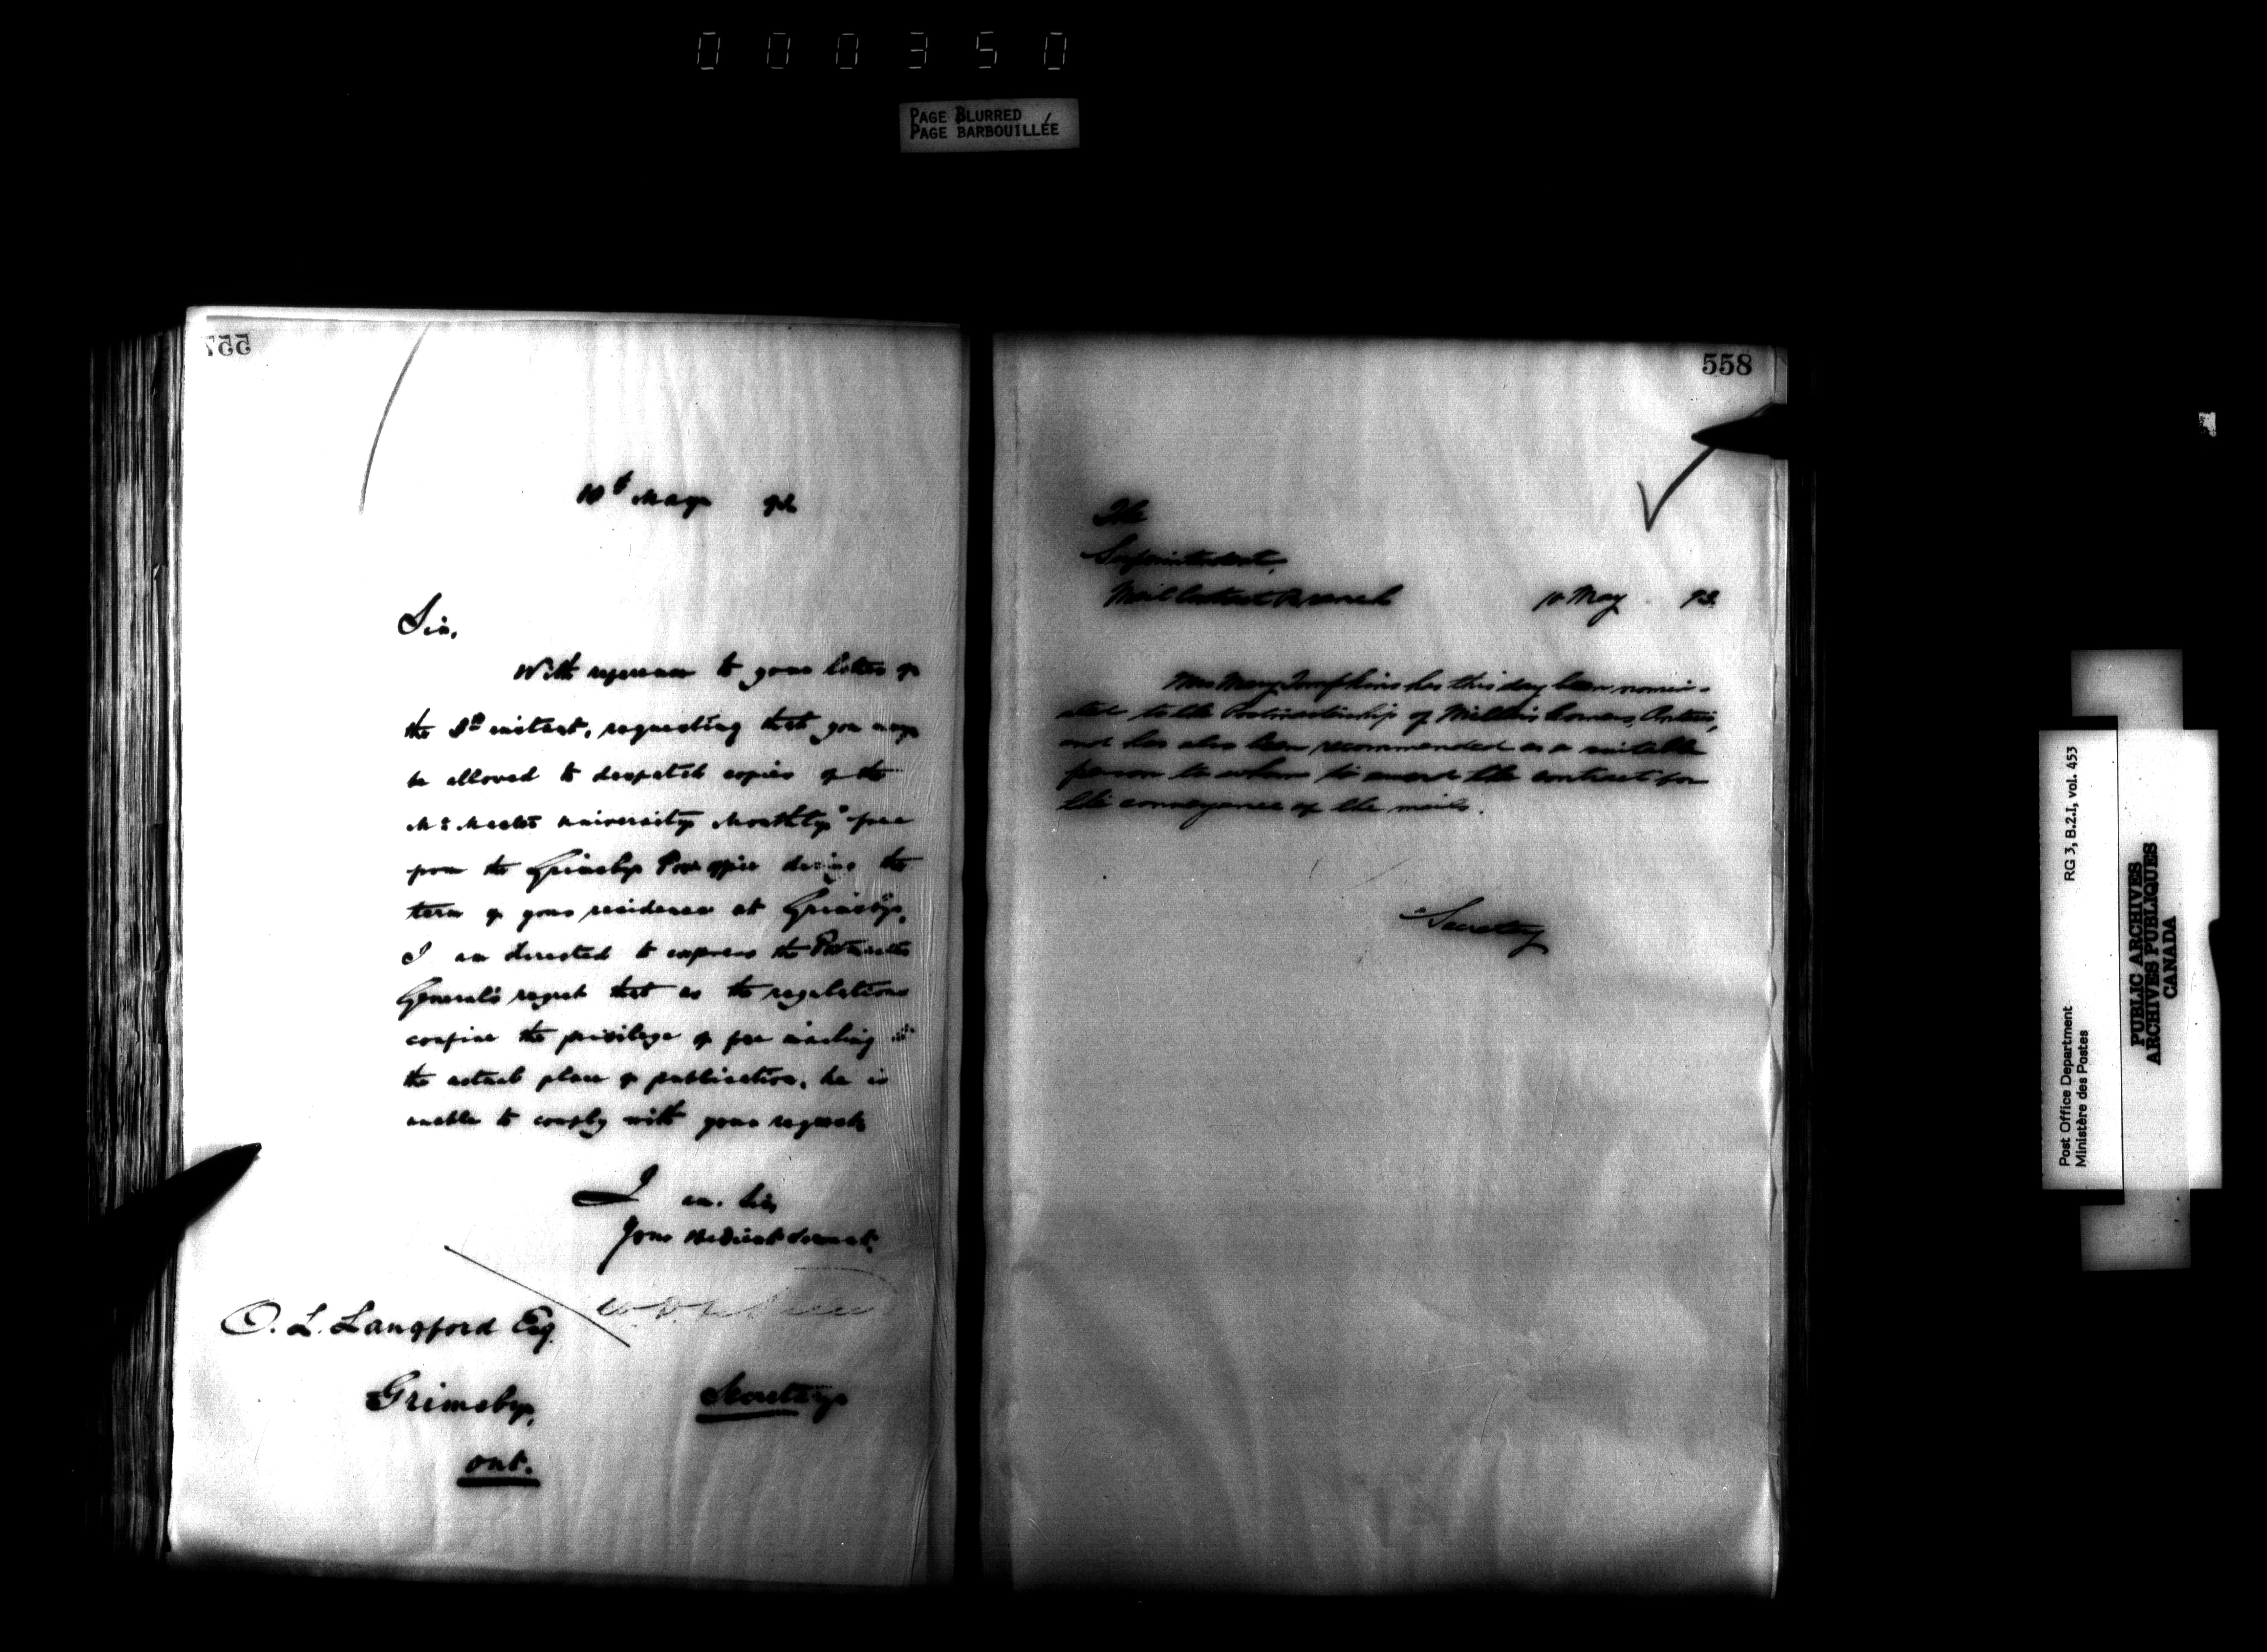 000350
PAGE BLURRED
PAGE BARBOUILLÉE
557
10th May 92
Sir,
With reference to your letter of
the 3rd instant, requesting that you may
be allowed to despatch copies of the
McMaster University Monthly" free
from the Grimsby Post office during the
term of your residence at Grimsby,
I am directed to express the Postmaster
General's regret that as the regulations
confine the privilege of free mailing to
the actual place of publication, he is
unable to comply with your request.
I am, Sir,
Your obedient servant,
O. L. Langford Esq.
Grimsby,
Ont.
Secretary
558
The
Superintendent,
Mail Contract Branch
10 May 92
Mrs Mary Tompkins has this day been nomin-
ated to the Postmastership of Corners, Ontario,
and has also been recommended as a suitable
person to whom to award the contract for
the conveyance of the mails.
Secretary
Post Office Department
Ministère des Postes
RG 3, B.2.I, vol. 453
PUBLIC ARCHIVES
ARCHIVES PUBLIQUES
CANADA